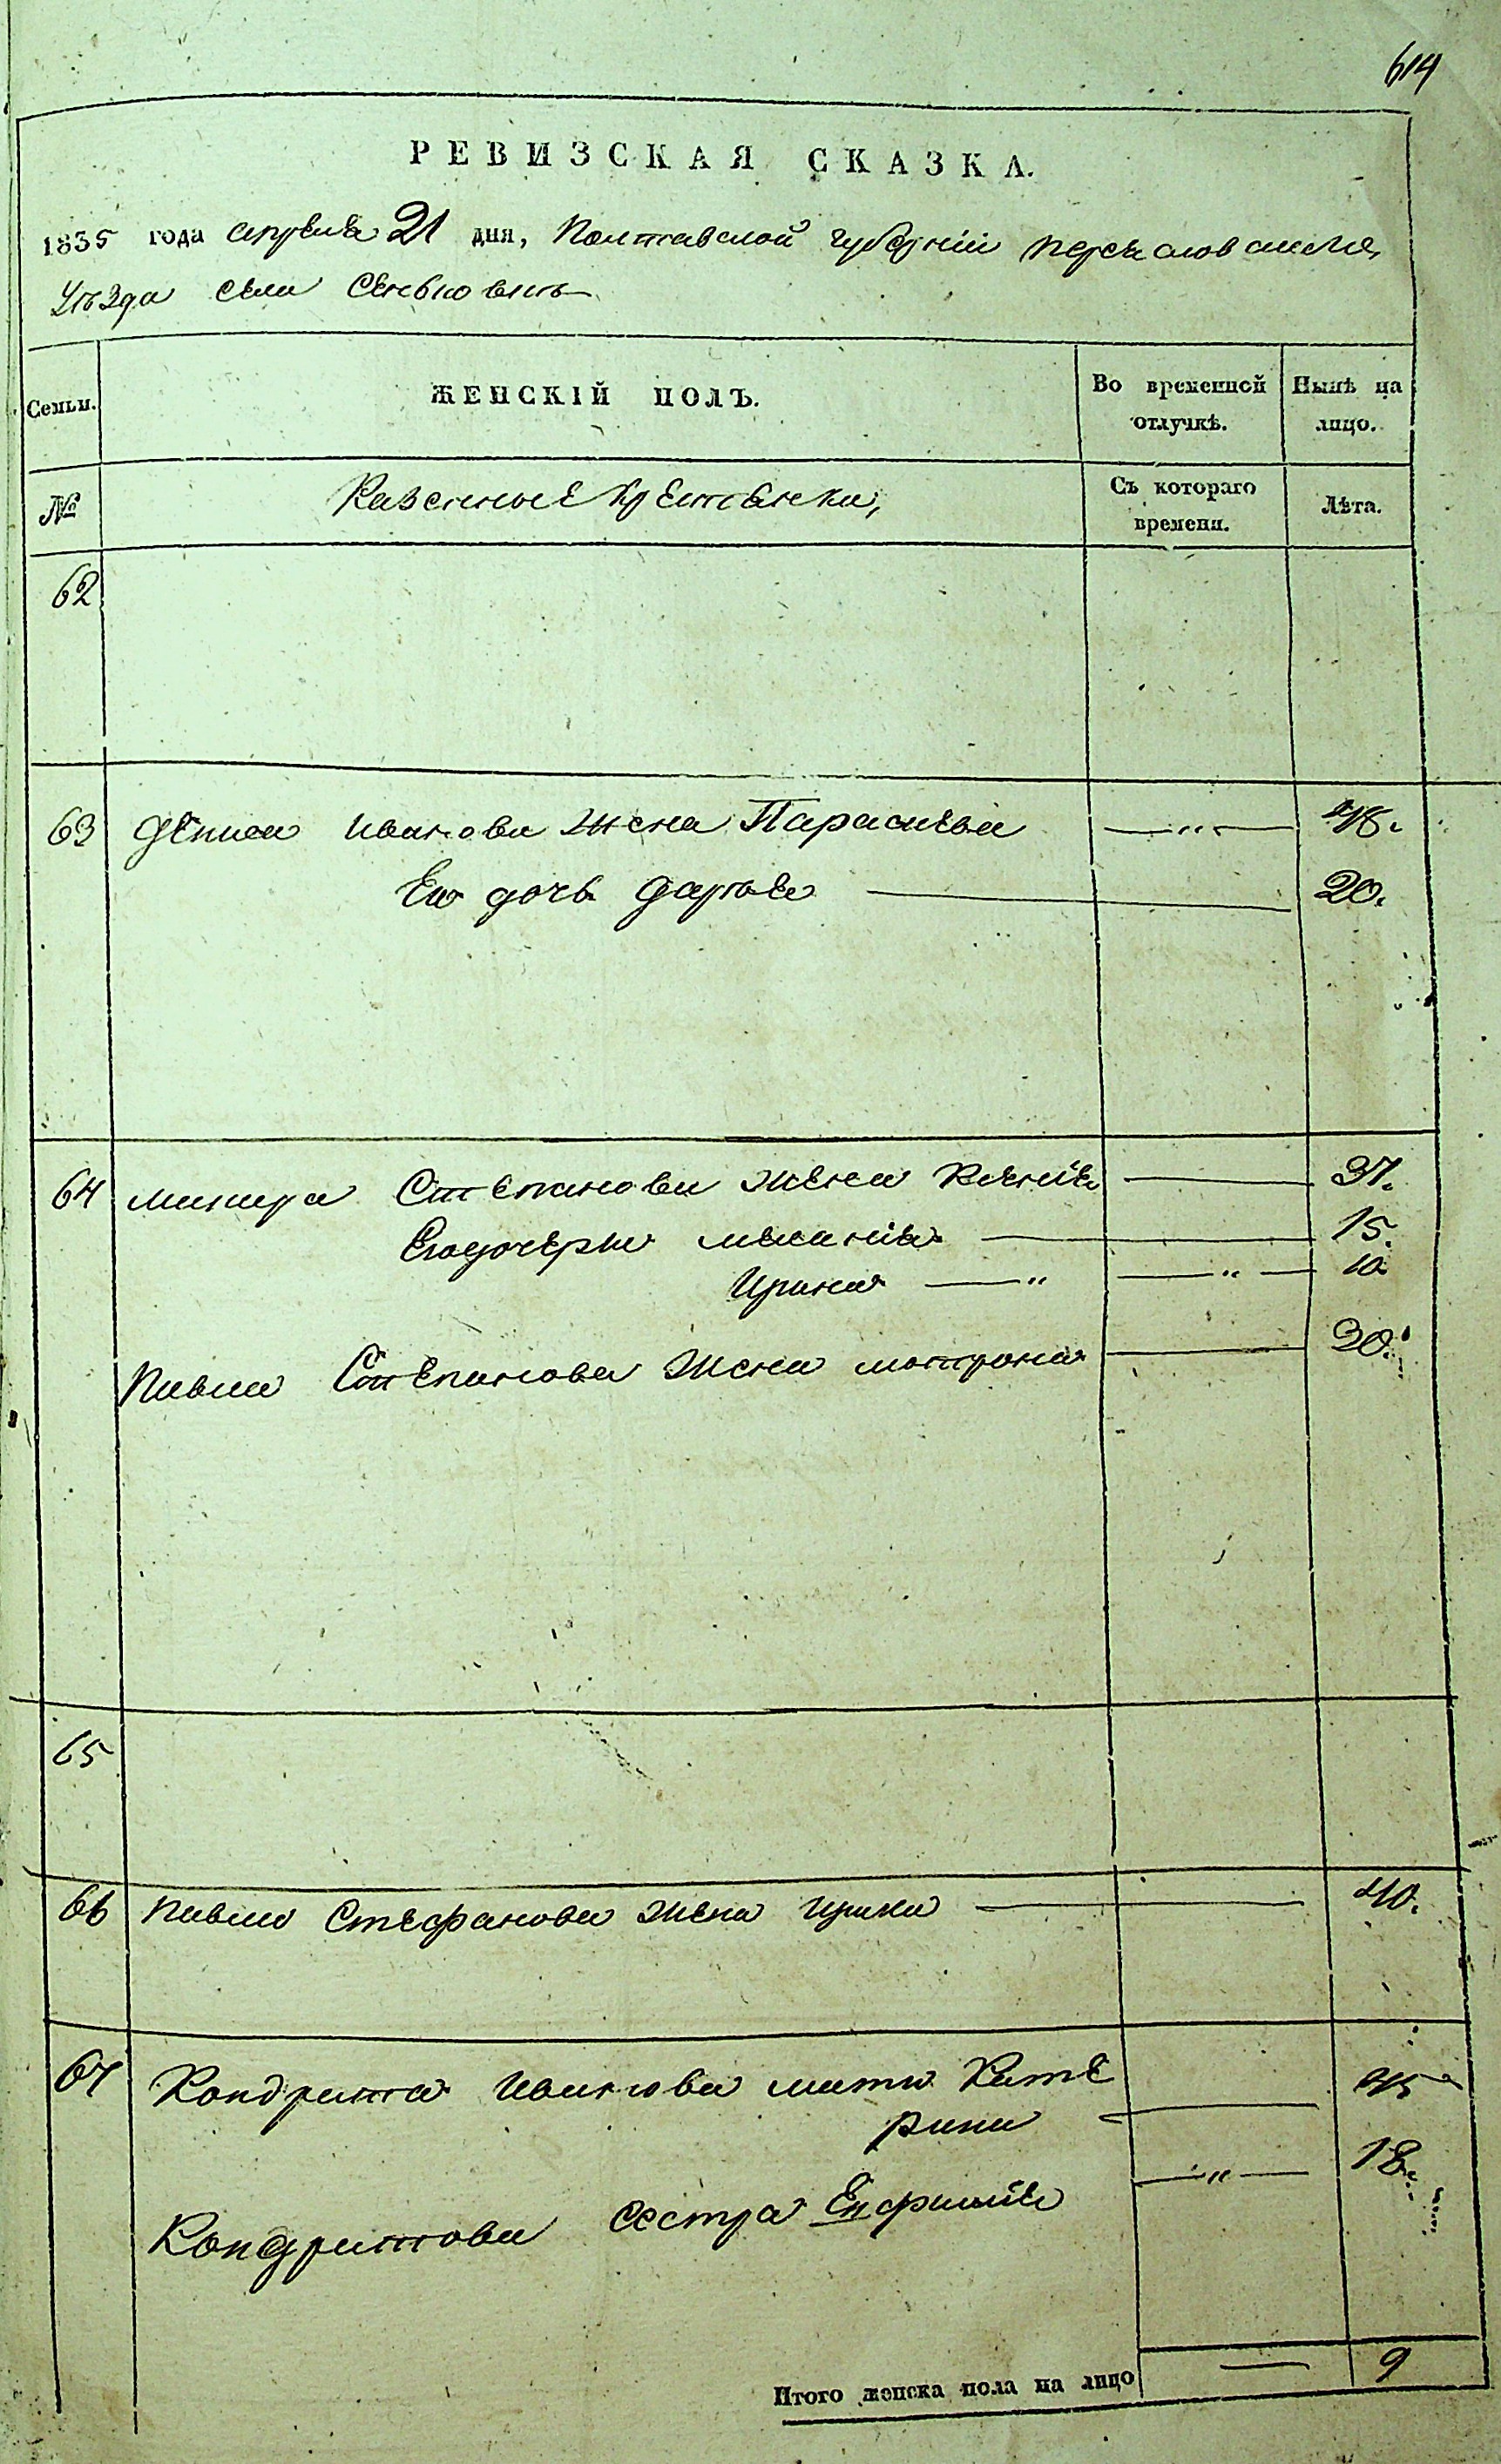 614
РЕВИЗСКАЯ СКАЗКА.
1835 года апреля 21 дня, Полтавской губерніи Переяславскаго
уѣзда села Сеньковки
Семьи. ЖЕНСКІЙ ПОЛЪ. Во временной отлучкѣ. Нынѣ на лицо.
№ Казенные крестьянки, Съ котораго времени. Лѣта.
62
63 Дениса Иванова жена Параскевья — " — 48.
Его дочь Дарья — 20.
64 Степанова жена Ксенія — 37.
Его дочери Меланія — 15.
Ирина — " — " — 10
Павла Степанова жена Мотрона — 30.
65
66 Павла Стефанова жена Ирина — 40.
67 Кондрата Иванова мать Кате
рина — 45
Кондратова сестра Евфимія — " — 18.
Итого женска пола на лицо — 9